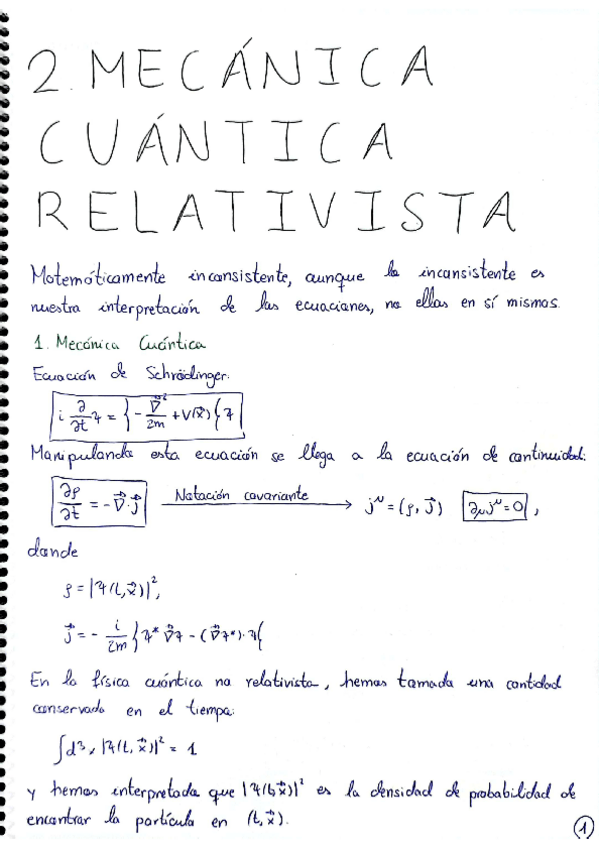 2. MECÁNICA
CUÁNTICA
RELATIVISTA
Matemáticamente inconsistente, aunque lo inconsistente es
nuestra interpretación de las ecuaciones, no ellas en sí mismas.
1. Mecánica Cuántica
Ecuación de Schrödinger:
i ∂/∂t Ψ = { - ∇⃗²/2m + V(x⃗) } Ψ
Manipulando esta ecuación se llega a la ecuación de continuidad:
∂ρ/∂t = -∇⃗·j⃗ Notación covariante → j^μ = (ρ, j⃗) ∂_μ j^μ = 0 ,
donde
ρ = |Ψ(t, x⃗)|²,
j⃗ = - i/2m { Ψ* ∇⃗Ψ - (∇⃗Ψ*)·Ψ }
En la física cuántica no relativista, hemos tomado una cantidad
conservada en el tiempo:
∫d³x |Ψ(t, x⃗)|² = 1
y hemos interpretado que |Ψ(t, x⃗)|² es la densidad de probabilidad de
encontrar la partícula en (t, x⃗).
1